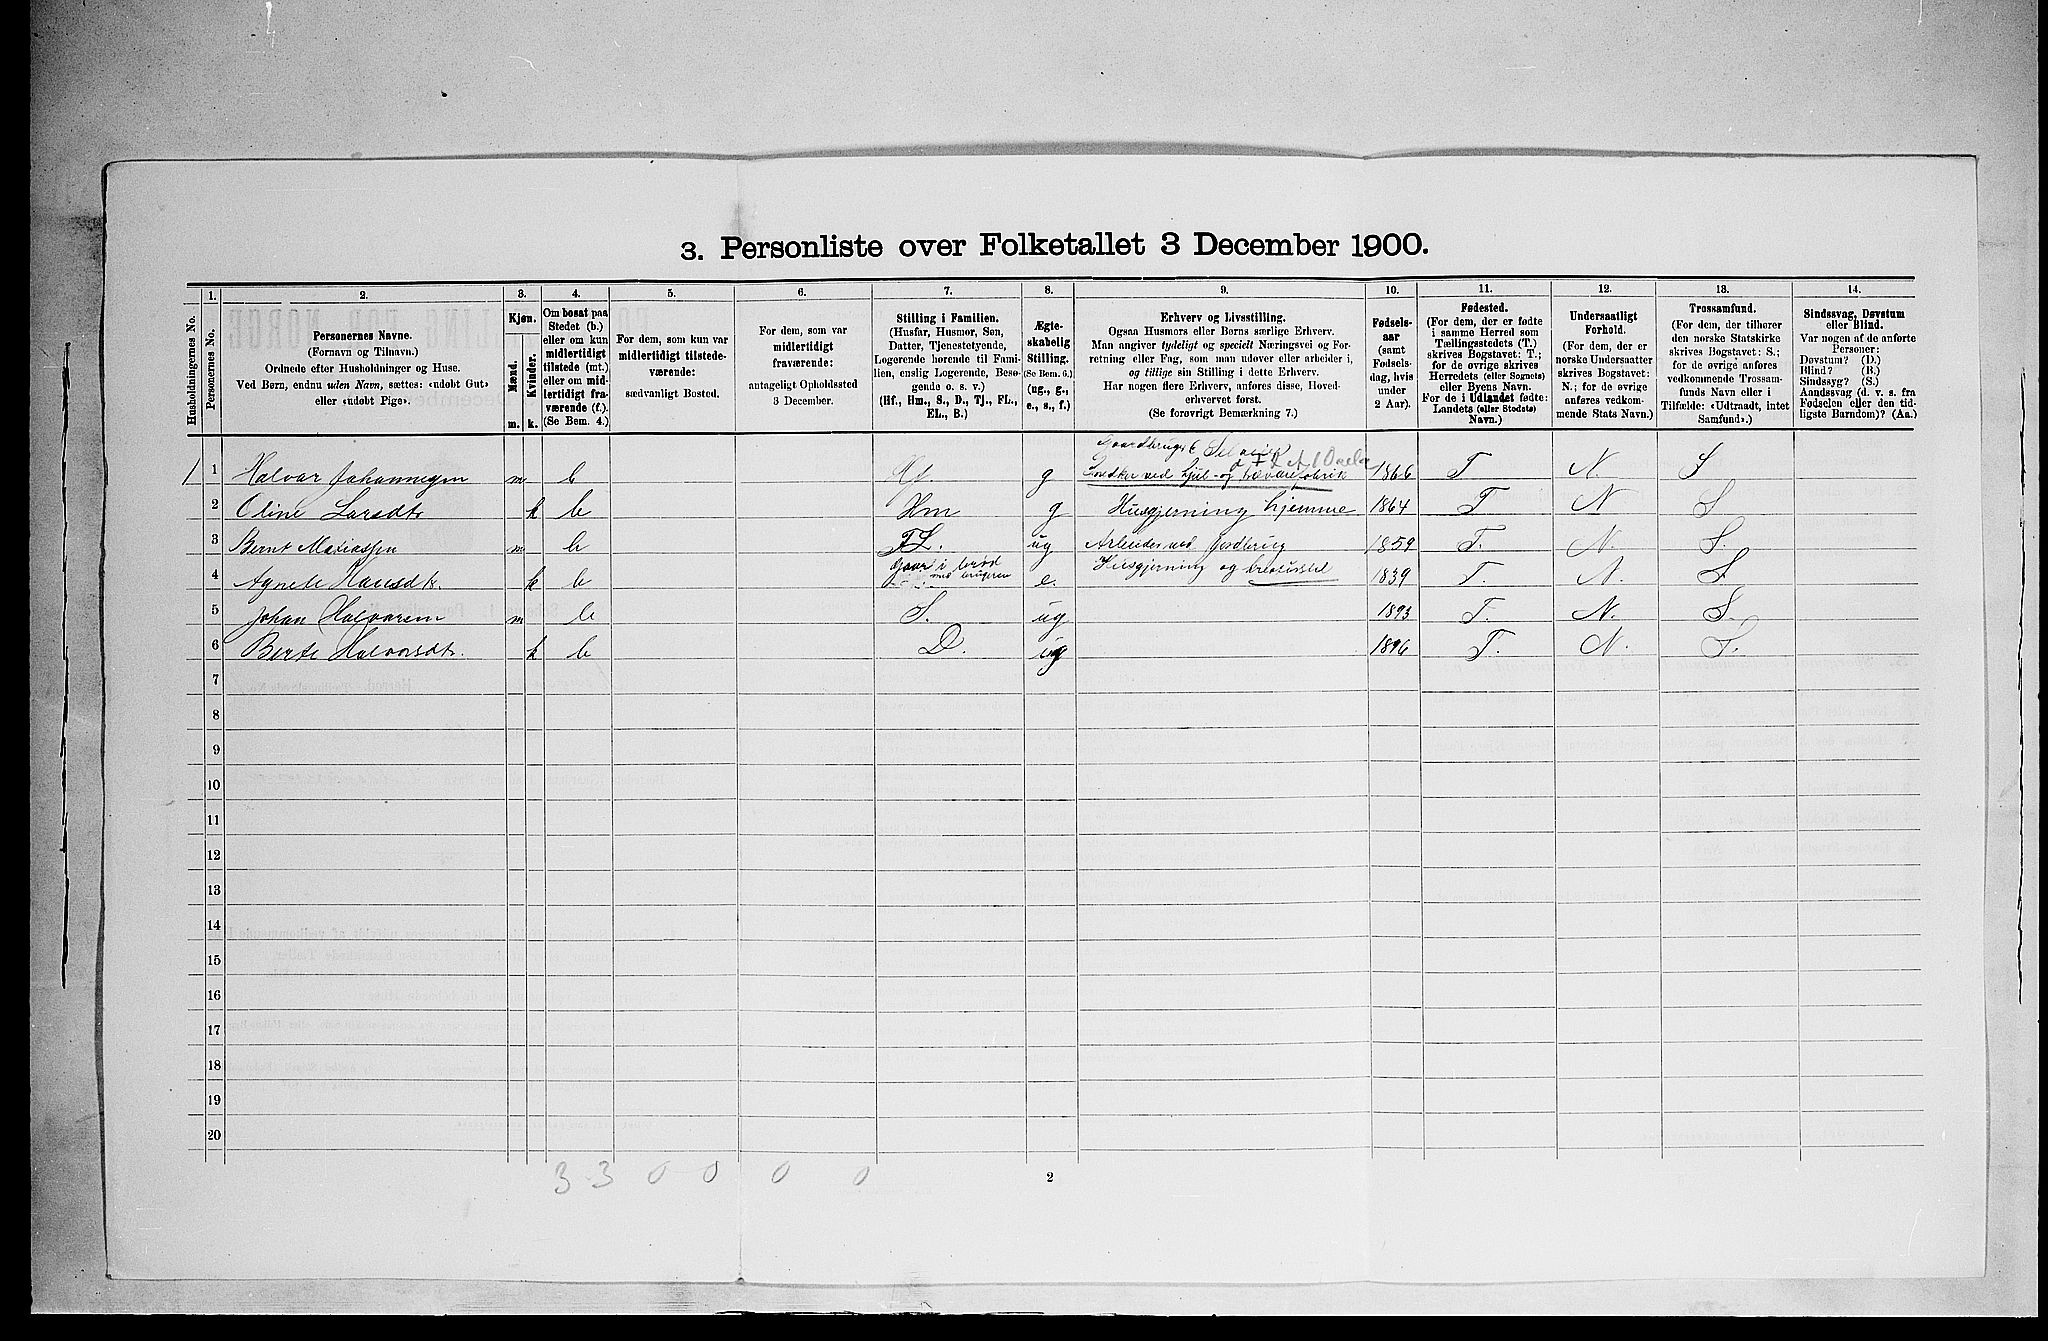 3. Personliste over Folketallet 3 December 1900.
Husholdningernes No.
1.
Personernes No.
2.
Personernes Navne.
(Fornavn og Tilnavn.)
Ordnede efter Husholdninger og Huse.
Ved Børn, endnu uden Navn, sættes: «udøbt Gut»
eller «udøbt Pige».
3.
Kjøn.
Mænd.
Kvinder.
m. k.
4.
Om bosat paa
Stedet (b.)
eller om kun
midlertidigt
tilstede (mt.)
eller om mid-
lertidigt fra-
værende (f.)
(Se Bem. 4.)
5.
For dem, som kun var
midlertidigt tilstede-
værende:
sædvanligt Bosted.
6.
For dem, som var
midlertidigt
fraværende:
antageligt Opholdssted
3 December.
7.
Stilling i Familien.
(Husfar, Husmor, Søn,
Datter, Tjenestetyende,
Logerende hørende til Fami-
lien, enslig Logerende, Besø-
gende o. s. v.)
(Hf., Hm., S., D., Tj., FL.,
EL., B.)
8.
Ægte-
skabelig
Stilling.
(Se Bem. 6.)
(ug., g.,
e., s., f.)
9.
Erhverv og Livsstilling.
Ogsaa Husmors eller Børns særlige Erhverv.
Man angiver tydeligt og specielt Næringsvei og For-
retning eller Fag, som man udøver eller arbeider i,
og tillige sin Stilling i dette Erhverv.
Har nogen flere Erhverv, anføres disse, Hoved-
erhvervet først.
(Se forøvrigt Bemærkning 7.)
10.
Fødsels-
aar
(samt
Fødsels-
dag, hvis
under
2 Aar).
11.
Fødested.
(For dem, der er fødte
i samme Herred som
Tællingsstedets (T.)
skrives Bogstavet: T.;
for de øvrige skrives
Herredets (eller Sognets)
eller Byens Navn.
For de i Udlandet fødte:
Landets (eller Stedets)
Navn.)
12.
Undersaatligt
Forhold.
(For dem, der er
norske Undersaatter
skrives Bogstavet:
N.; for de øvrige
anføres vedkom-
mende Stats Navn.)
13.
Trossamfund.
(For dem, der tilhører
den norske Statskirke
skrives Bogstavet: S.;
for de øvrige anføres
vedkommende Trossam-
funds Navn eller i
Tilfælde: «Udtraadt, intet
Samfund».)
14.
Sindssvag, Døvstum
eller Blind.
Var nogen af de anførte
Personer:
Døvstum? (D.)
Blind? (B.)
Sindssyg? (S.)
Aandssvag (d. v. s. fra
Fødselen eller den tid-
ligste Barndom)? (Aa.)
1 1 Halvor Johannesen m b Hf. g Gaardbruger Selveier
Snedker ved Hjul- og trævarefabrik 1866 T. N. S
2 Oline Larsdtr k b Hm g Husgjerning hjemme 1864 T N S
3 Bernt Matiassen m b FL. ug Arbeider ved Jordbrug 1859 T. N. S.
4 Agnete Hansdtr. k b Gaar i brød
med brugeren e. Husgjerning og kreaturstel 1839 T. N. S
5 Johan Halvorsen m b S. ug 1893 T. N. S.
6 Berte Halvorsdtr. k b D. ug 1896 T. N. S.
7
8
9
10
11
12
13
14
15
16
17
18
19
20
3 3 0 0 0 0
2